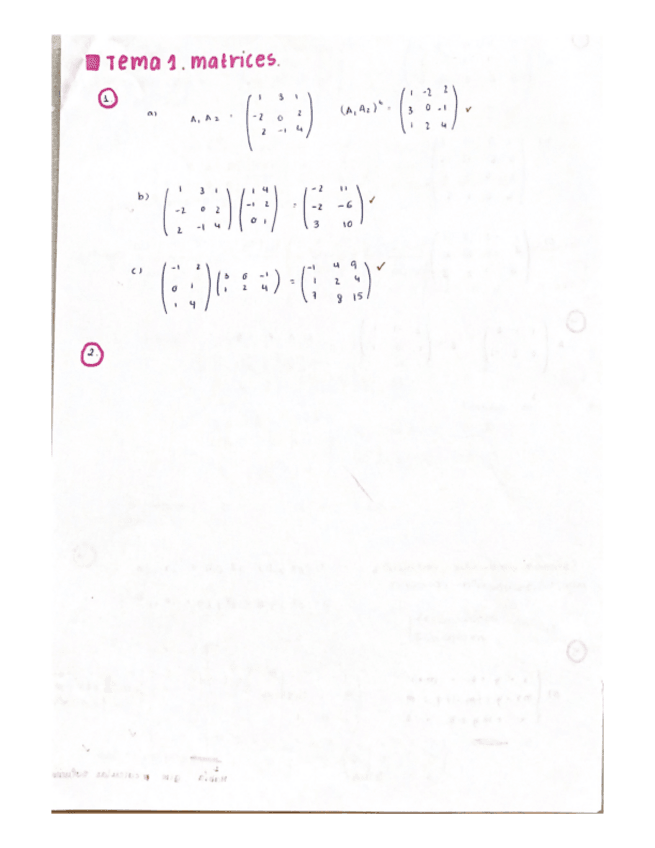 Tema 1. matrices.
1
a) A₁ A₂ = ( 1 3 1 ; -2 0 2 ; 2 -1 4 ) (A₁ A₂)ᵗ = ( 1 -2 2 ; 3 0 -1 ; 1 2 4 ) ✓
b) ( 1 3 1 ; -2 0 2 ; 2 -1 4 ) ( 1 4 ; -1 2 ; 0 1 ) = ( -2 11 ; -2 -6 ; 3 10 ) ✓
c) ( -1 2 ; 0 1 ; 1 4 ) ( 3 0 -1 ; 1 2 4 ) = ( -1 4 9 ; 1 2 4 ; 7 8 15 ) ✓
2.